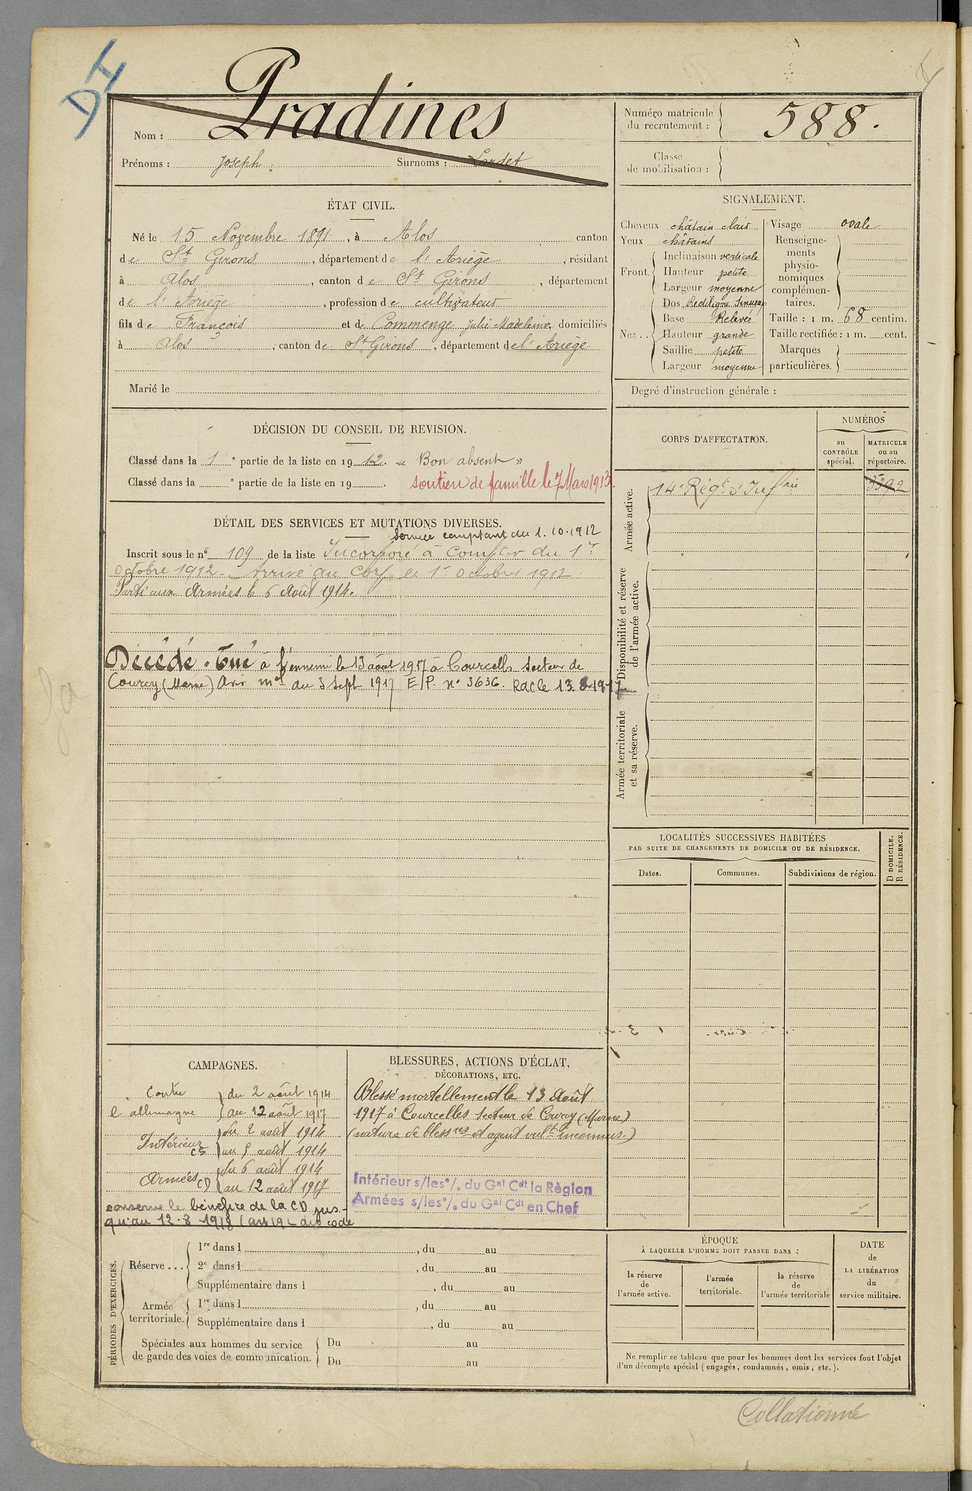 DI
Nom : Pradines
Prénoms : Joseph Surnoms : Lardet
Numéro matricule du recrutement : 588.
Classe de mobilisation :
ÉTAT CIVIL.
Né le 15 Novembre 1891, à Alos canton
de St Girons, département de l'Ariège, résidant
à Alos, canton de St Girons, département
de l'Ariège, profession de cultivateur
fils de François et de Commenge Julie Madeleine, domiciliés
à Alos, canton de St Girons, département de l'Ariège
Marié le
SIGNALEMENT.
Cheveux châtain clair
Yeux châtains
Front. Inclinaison verticale
Hauteur petite
Largeur moyenne
Nez. Dos Rectiligne Sinueux
Base Relevée
Hauteur grande
Saillie petite
Largeur moyenne
Visage ovale
Renseignements physionomiques complémentaires.
Taille : 1 m. 68 centim.
Taille rectifiée : 1 m. cent.
Marques particulières.
Degré d'instruction générale :
DÉCISION DU CONSEIL DE REVISION.
Classé dans la 1e partie de la liste en 1912. « Bon absent »
Classé dans la e partie de la liste en 19 . soutien de famille le 7 Mars 1913.
CORPS D'AFFECTATION.
NUMÉROS
au CONTRÔLE spécial.
MATRICULE ou au répertoire.
Armée active.
14e Régt d'Inftrie
Disponibilité et réserve de l'armée active.
Armée territoriale et sa réserve.
DÉTAIL DES SERVICES ET MUTATIONS DIVERSES.
Service comptant du 1.10.1912
Inscrit sous le no 109 de la liste Incorporé à compter du 1er
octobre 1912. Arrivé au Corps le 1er octobre 1912
Parti aux Armées le 6 Août 1914.
Décédé. Tué à l'ennemi le 13 août 1917 à Courcelles secteur de
Courcy (Marne) Avis mel du 3 Sept 1917 E.P. no 3636. Rac le 13.8.1917
LOCALITÉS SUCCESSIVES HABITÉES
PAR SUITE DE CHANGEMENTS DE DOMICILE OU DE RÉSIDENCE.
Dates. Communes. Subdivisions de région.
D DOMICILE.
R RÉSIDENCE.
CAMPAGNES.
Contre du 2 août 1914
l'allemagne au 12 août 1917
Intérieur du 2 août 1914
CS au 5 août 1914
Armées du 6 août 1914
CD au 12 août 1917
conserve le bénéfice de la CD jus-
qu'au 12.8.1918 (art 19 L des code
BLESSURES, ACTIONS D'ÉCLAT,
DÉCORATIONS, ETC.
Blessé mortellement le 13 Août
1917 à Courcelles secteur de Courcy (Marne)
(nature de blessres et agent vult inconnus.)
Intérieur s/les o/. du Gal Cdt la Règion
Armées s/les o/. du Gal Cdt en Chef
PÉRIODES D'EXERCICES.
Réserve ... 1re dans l , du au
2e dans l , du au
Supplémentaire dans l , du au
Armée territoriale. 1re dans l , du au
Supplémentaire dans l , du au
Spéciales aux hommes du service Du au
de garde des voies de communication. Du au
ÉPOQUE
À LAQUELLE L'HOMME DOIT PASSER DANS :
la réserve de l'armée active.
l'armée territoriale.
la réserve de l'armée territoriale
DATE de LA LIBÉRATION du service militaire.
Ne remplir ce tableau que pour les hommes dont les services font l'objet
d'un décompte spécial (engagés, condamnés, omis, etc.).
Collationné